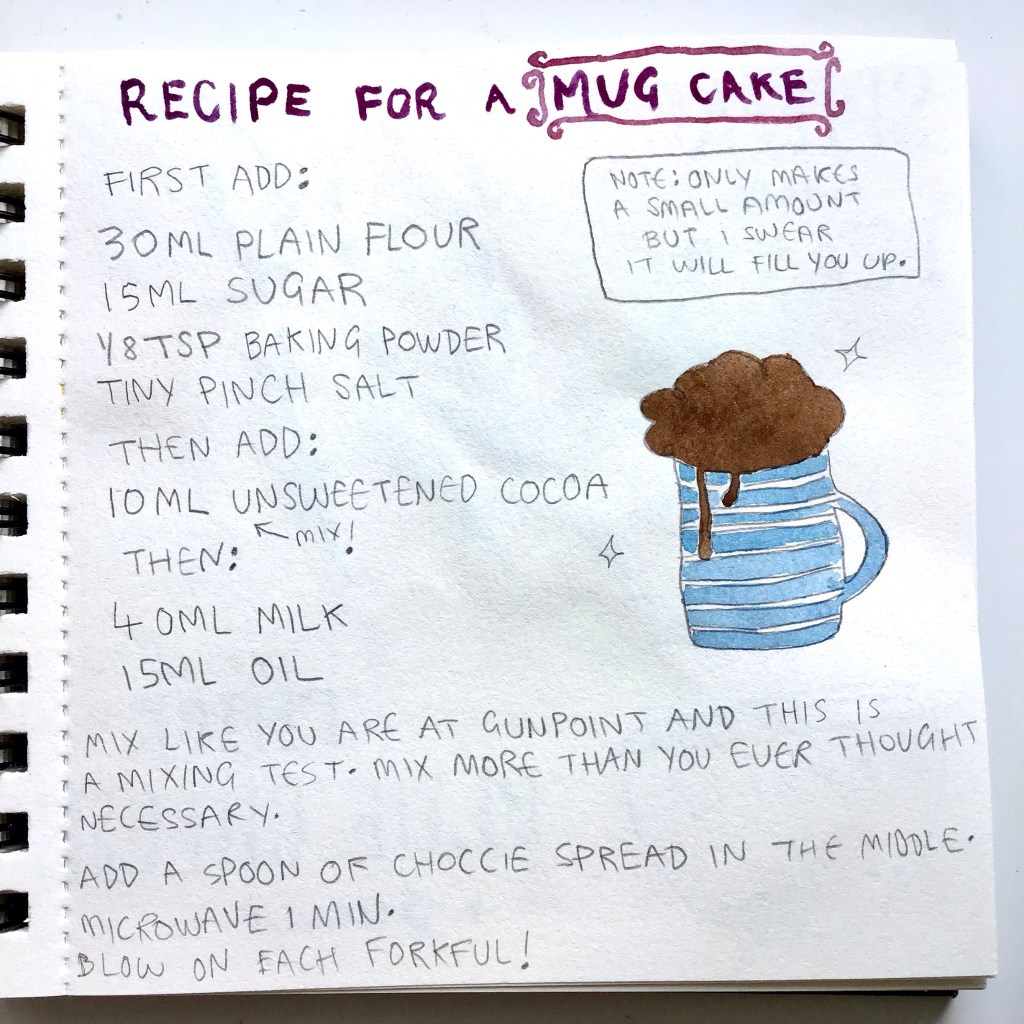 RECIPE FOR A MUG CAKE
NOTE: ONLY MAKES
A SMALL AMOUNT
BUT I SWEAR
IT WILL FILL YOU UP.
FIRST ADD:
30ML PLAIN FLOUR
15ML SUGAR
1/8 TSP BAKING POWDER
TINY PINCH SALT
THEN ADD:
10ML UNSWEETENED COCOA
MIX!
THEN:
40ML MILK
15ML OIL
MIX LIKE YOU ARE AT GUNPOINT AND THIS IS
A MIXING TEST. MIX MORE THAN YOU EVER THOUGHT
NECESSARY.
ADD A SPOON OF CHOCCIE SPREAD IN THE MIDDLE.
MICROWAVE 1 MIN.
BLOW ON EACH FORKFUL!